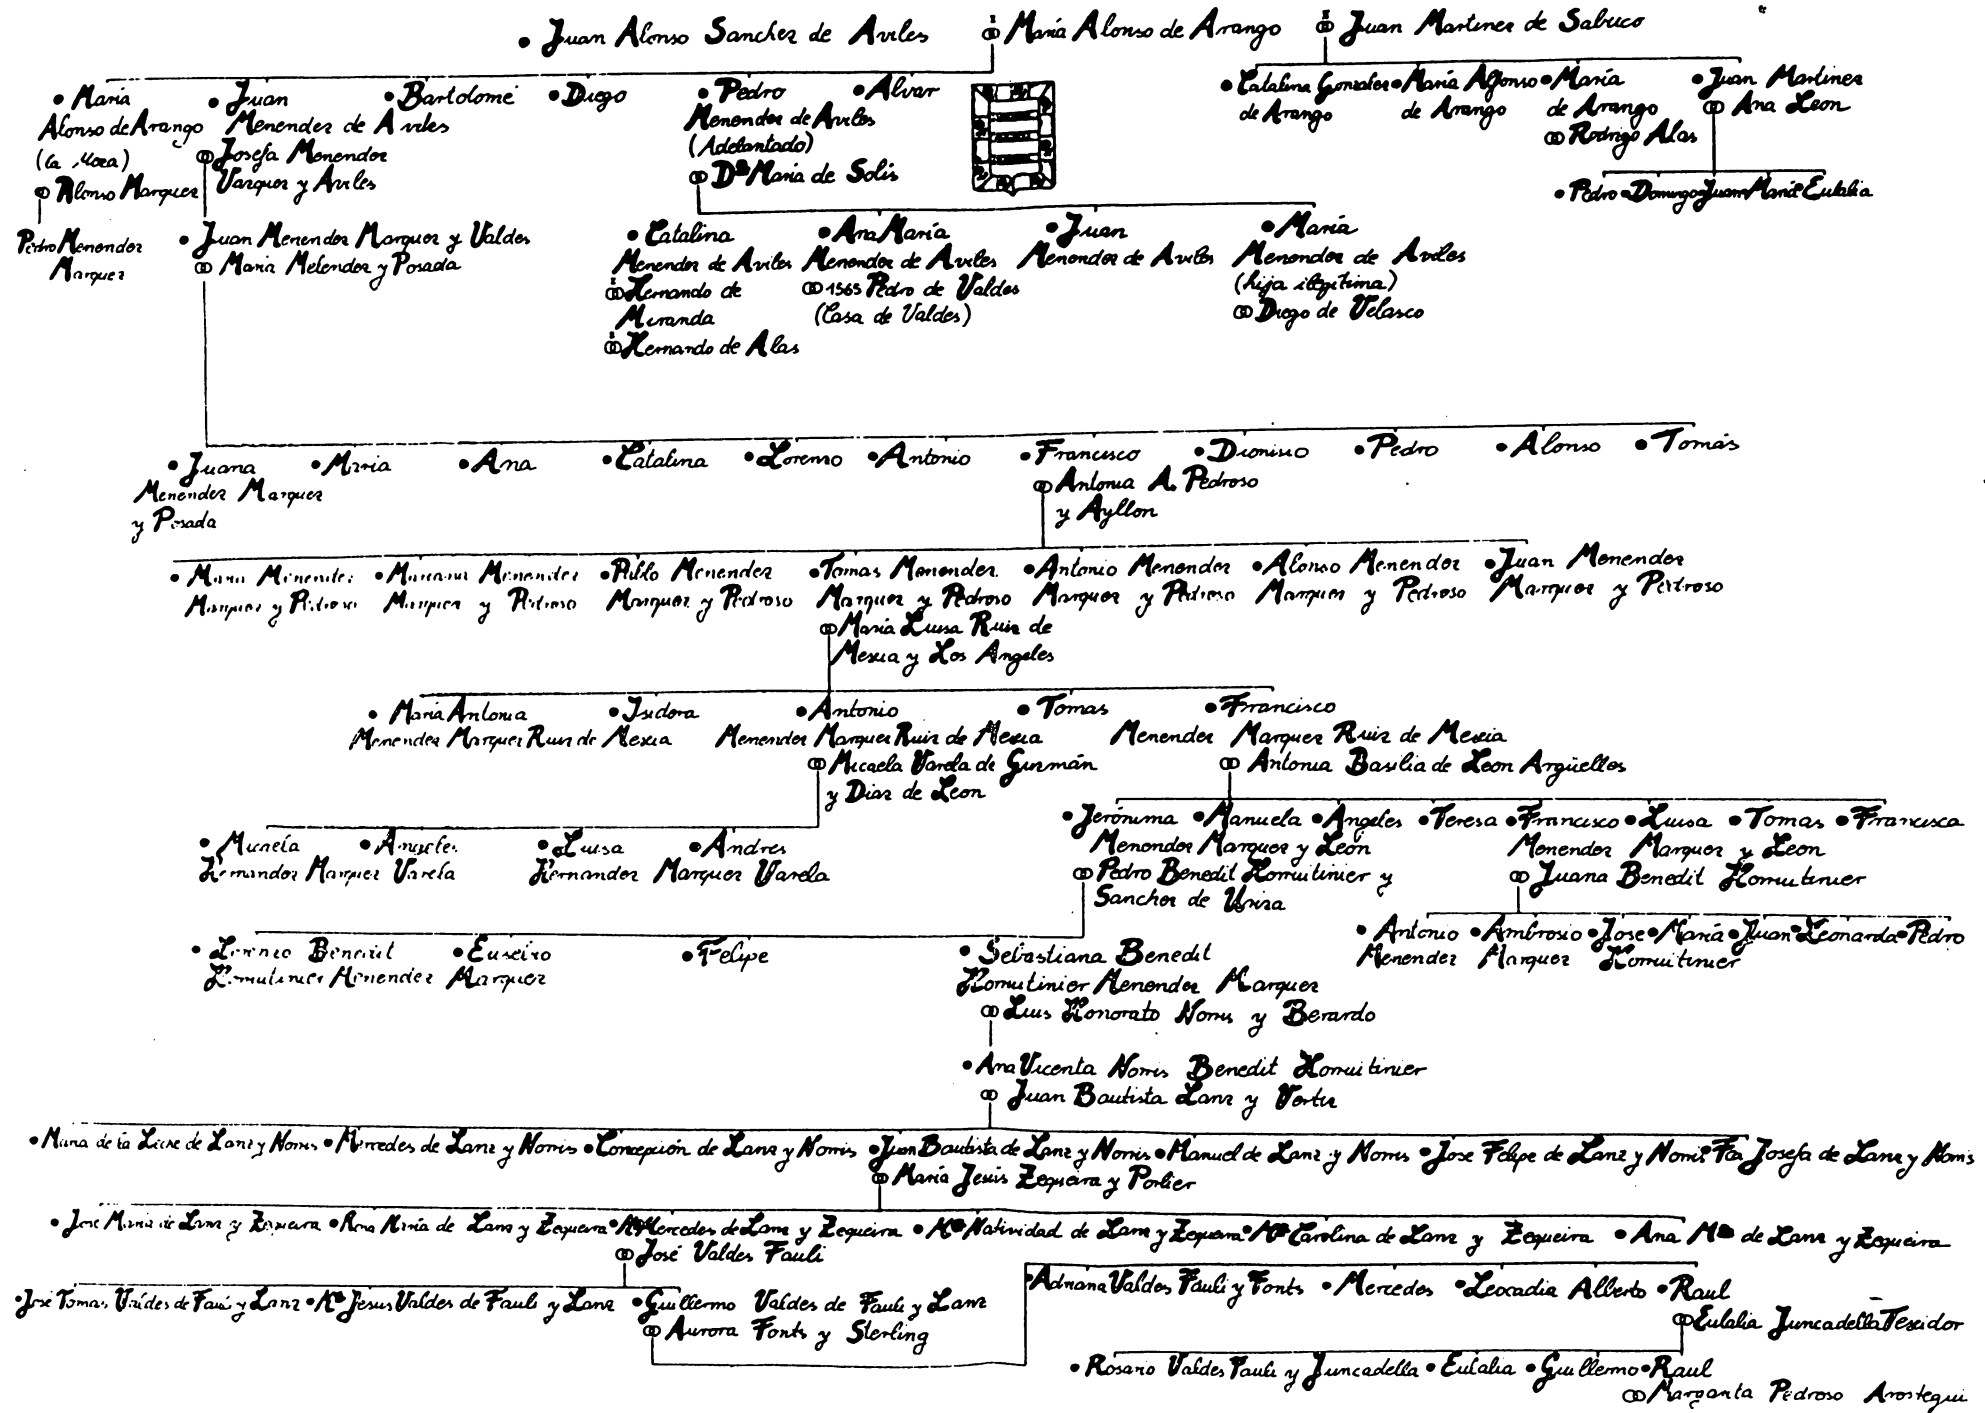 • Juan Alonso Sanchez de Aviles
1 María Alonso de Arango
2 Juan Martinez de Sabuco
• María
Alonso de Arango
(la Moza)
Alonso Marquez
Pedro Menendez
Marquez
• Juan
Menendez de Aviles
Josefa Menendez
Vazquez y Aviles
• Bartolomé
• Diego
• Pedro
Menendez de Aviles
(Adelantado)
Dª María de Solís
• Alvar
• Catalina Gonzalez
de Arango
• María Alfonso
de Arango
• María
de Arango
Rodrigo Alas
• Juan Martinez
Ana Leon
• Pedro • Domingo Juan María Eulalia
• Juan Menendez Marquez y Valdes
Maria Melendez y Posada
• Catalina
Menendez de Aviles
1 Hernando de
Miranda
2 Hernando de Alas
• Ana María
Menendez de Aviles
1565 Pedro de Valdes
(Casa de Valdes)
• Juan
Menendez de Aviles
• María
Menendez de Aviles
(hija ilegitima)
Diego de Velasco
• Juana
Menendez Marquez
y Posada
• Maria
• Ana
• Catalina
• Lorenzo
• Antonio
• Francisco
Antonia A. Pedroso
y Ayllon
• Dionisio
• Pedro
• Alonso
• Tomás
• Maria Menendez
Marquez y Pedroso
• Mariana Menendez
Marquez y Pedroso
• Pablo Menendez
Marquez y Pedroso
• Tomas Menendez
Marquez y Pedroso
María Luisa Ruiz de
Mexia y Los Angeles
• Antonio Menendez
Marquez y Pedroso
• Alonso Menendez
Marquez y Pedroso
• Juan Menendez
Marquez y Pedroso
• María Antonia
Menendez Marquez Ruiz de Mexia
• Isidora
• Antonio
Menendez Marquez Ruiz de Mexia
Micaela Varela de Guzmán
y Diaz de Leon
• Tomas
• Francisco
Menendez Marquez Ruiz de Mexia
Antonia Basilia de Leon Argüelles
• Micaela
Hernandez Marquez Varela
• Angeles
• Luisa
Hernandez Marquez Varela
• Andres
• Jerónima • Manuela • Angeles • Teresa • Francisco • Luisa • Tomas • Francisca
Menendez Marquez y León
Pedro Benedit Horruitinier y
Sanchez de Uriza
Menendez Marquez y Leon
Juana Benedit Horruitinier
• Antonio • Ambrosio • Jose • María • Juan • Leonarda • Pedro
Menendez Marquez Horruitinier
• Lorenzo Benedit
Horruitinier Menendez Marquez
• Eusebio
• Felipe
• Sebastiana Benedit
Horrutinier Menendez Marquez
Luis Honorato Norris y Berardo
• Ana Vicenta Norris Benedit Horruitinier
Juan Bautista Lanz y Vertiz
• Maria de la Luz de Lanz y Norris • Mercedes de Lanz y Norris • Concepción de Lanz y Norris • Juan Bautista de Lanz y Norris • Manuel de Lanz y Norris • Jose Felipe de Lanz y Norris • Fca Josefa de Lanz y Norris
María Jesús Zequeira y Porlier
• José Maria de Lanz y Zequeira • Ana María de Lanz y Zequeira • Mª Mercedes de Lanz y Zequeira • Mª Natividad de Lanz y Zequeira • Mª Carolina de Lanz y Zequeira • Ana Mª de Lanz y Zequeira
José Valdes Fauli
• José Tomas Valdes de Fauli y Lanz • Mª Jesus Valdes de Fauli y Lanz • Guillermo Valdes de Fauli y Lanz
Aurora Fonts y Sterling
• Adriana Valdes Fauli y Fonts • Mercedes • Leocadia Alberto • Raul
Eulalia Juncadella Texidor
• Rosario Valdes Fauli y Juncadella • Eulalia • Guillermo • Raul
Margarita Pedroso Arostegui